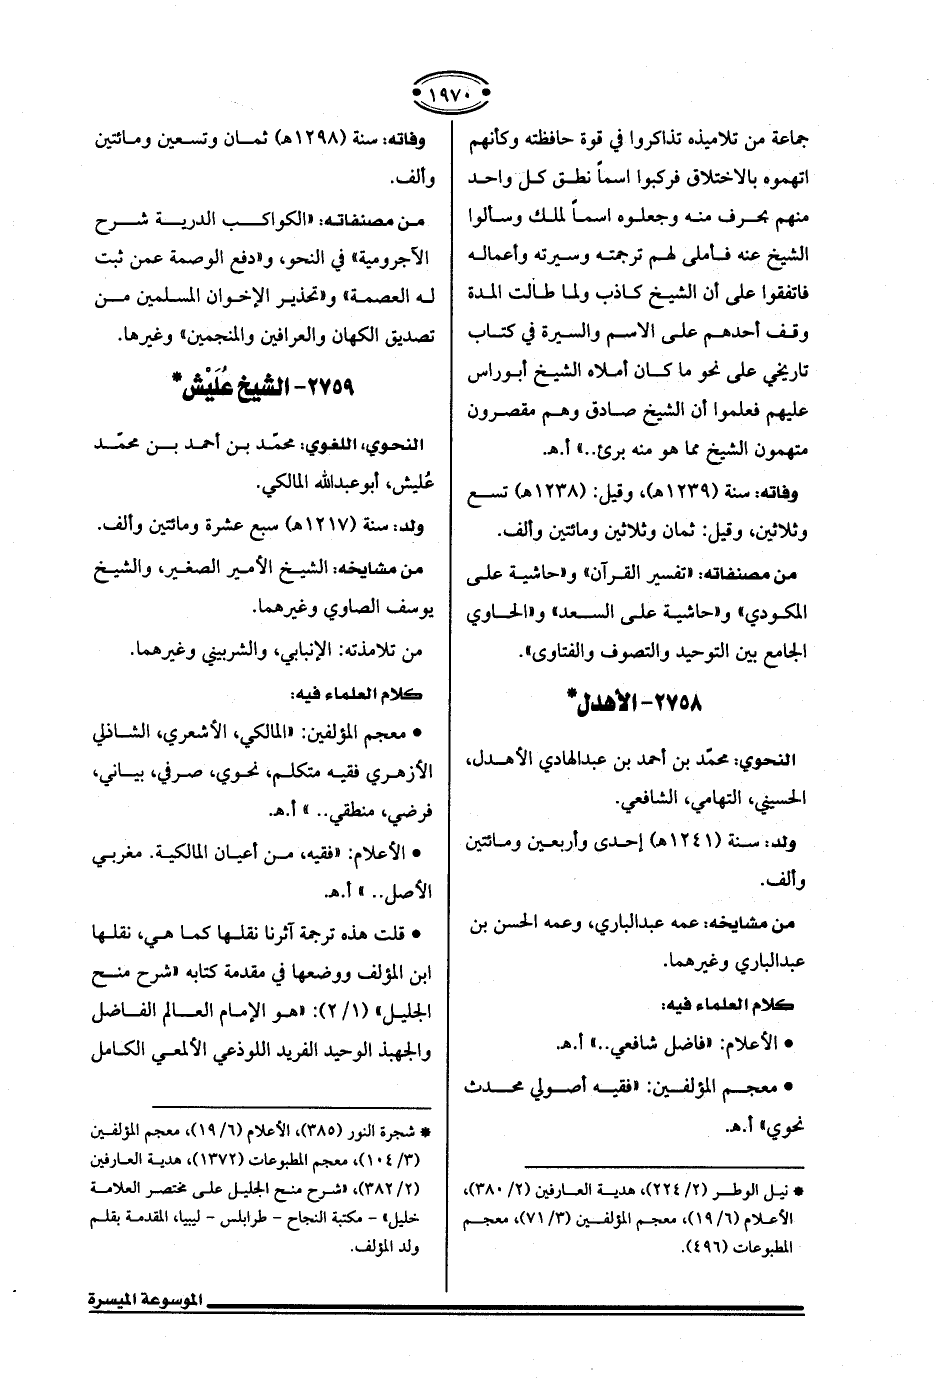 ١٩٧٠
جماعة من تلاميذه تذاكروا في قوة حافظته وكأنهم
اتهموه بالاختلاق فركبوا اسماً نطق كل واحد
منهم بحرف منه وجعلوه اسماً لملك وسألوا
الشيخ عنه فأملى لهم ترجمته وسيرته وأعماله
فاتفقوا على أن الشيخ كاذب ولما طالت المدة
وقف أحدهم على الاسم والسيرة في كتاب
تاريخي على نحو ما كان أملاه الشيخ أبوراس
عليهم فعلموا أن الشيخ صادق وهم مقصرون
متهمون الشيخ مما هو منه برئ..» أ.هـ.
وفاته: سنة (١٢٣٩هـ)، وقيل: (١٢٣٨هـ) تسع
وثلاثين، وقيل: ثمان وثلاثين ومائتين وألف.
من مصنفاته: «تفسير القرآن» و«حاشية على
المكودي» و«حاشية على السعد» و«الحاوي
الجامع بين التوحيد والتصوف والفتاوى».
٢٧٥٨- الأهدل*
النحوي: محمّد بن أحمد بن عبدالهادي الأهدل،
الحسيني، التهامي، الشافعي.
ولد: سنة (١٢٤١هـ) إحدى وأربعين ومائتين
وألف.
من مشايخه: عمه عبدالباري، وعمه الحسن بن
عبدالباري وغيرهما.
كلام العلماء فيه:
• الأعلام: «فاضل شافعي..» أ.هـ.
• معجم المؤلفين: «فقيه أصولي محدث
نحوي» أ.هـ.
* نيل الوطر (٢/ ٢٢٤)، هدية العارفين (٢/ ٣٨٠)،
الأعلام (٦/ ١٩)، معجم المؤلفين (٣/ ٧١)، معجم
المطبوعات (٤٩٦).
وفاته: سنة (١٢٩٨هـ) ثمان وتسعين ومائتين
وألف.
من مصنفاته: «الكواكب الدرية شرح
الآجرومية» في النحو، و«دفع الوصمة عمن ثبت
له العصمة» و«تحذير الإخوان المسلمين من
تصديق الكهان والعرافين والمنجمين» وغيرها.
٢٧٥٩- الشيخ عُلَيْش*
النحوي، اللغوي: محمّد بن أحمد بن محمّد
عُليش، أبوعبدالله المالكي.
ولد: سنة (١٢١٧هـ) سبع عشرة ومائتين وألف.
من مشايخه: الشيخ الأمير الصغير، والشيخ
يوسف الصاوي وغيرهما.
من تلامذته: الإنبابي، والشربيني وغيرهما.
كلام العلماء فيه:
• معجم المؤلفين: «المالكي، الأشعري، الشاذلي
الأزهري فقيه متكلم، نحوي، صرفي، بياني،
فرضي، منطقي.. » أ.هـ.
• الأعلام: «فقيه، من أعيان المالكية. مغربي
الأصل.. » أ.هـ.
• قلت هذه ترجمة آثرنا نقلها كما هي، نقلها
ابن المؤلف ووضعها في مقدمة كتابه «شرح منح
الجليل» (١/ ٢): «هو الإمام العالم الفاضل
والجهبذ الوحيد الفريد اللوذعي الألمعي الكامل
* شجرة النور (٣٨٥)، الأعلام (٦/ ١٩)، معجم المؤلفين
(٣/ ١٠٤)، معجم المطبوعات (١٣٧٢)، هدية العارفين
(٢/ ٣٨٢)، «شرح منح الجليل على مختصر العلامة
خليل» - مكتبة النجاح - طرابلس - ليبيا، المقدمة بقلم
ولد المؤلف.
الموسوعة الميسرة